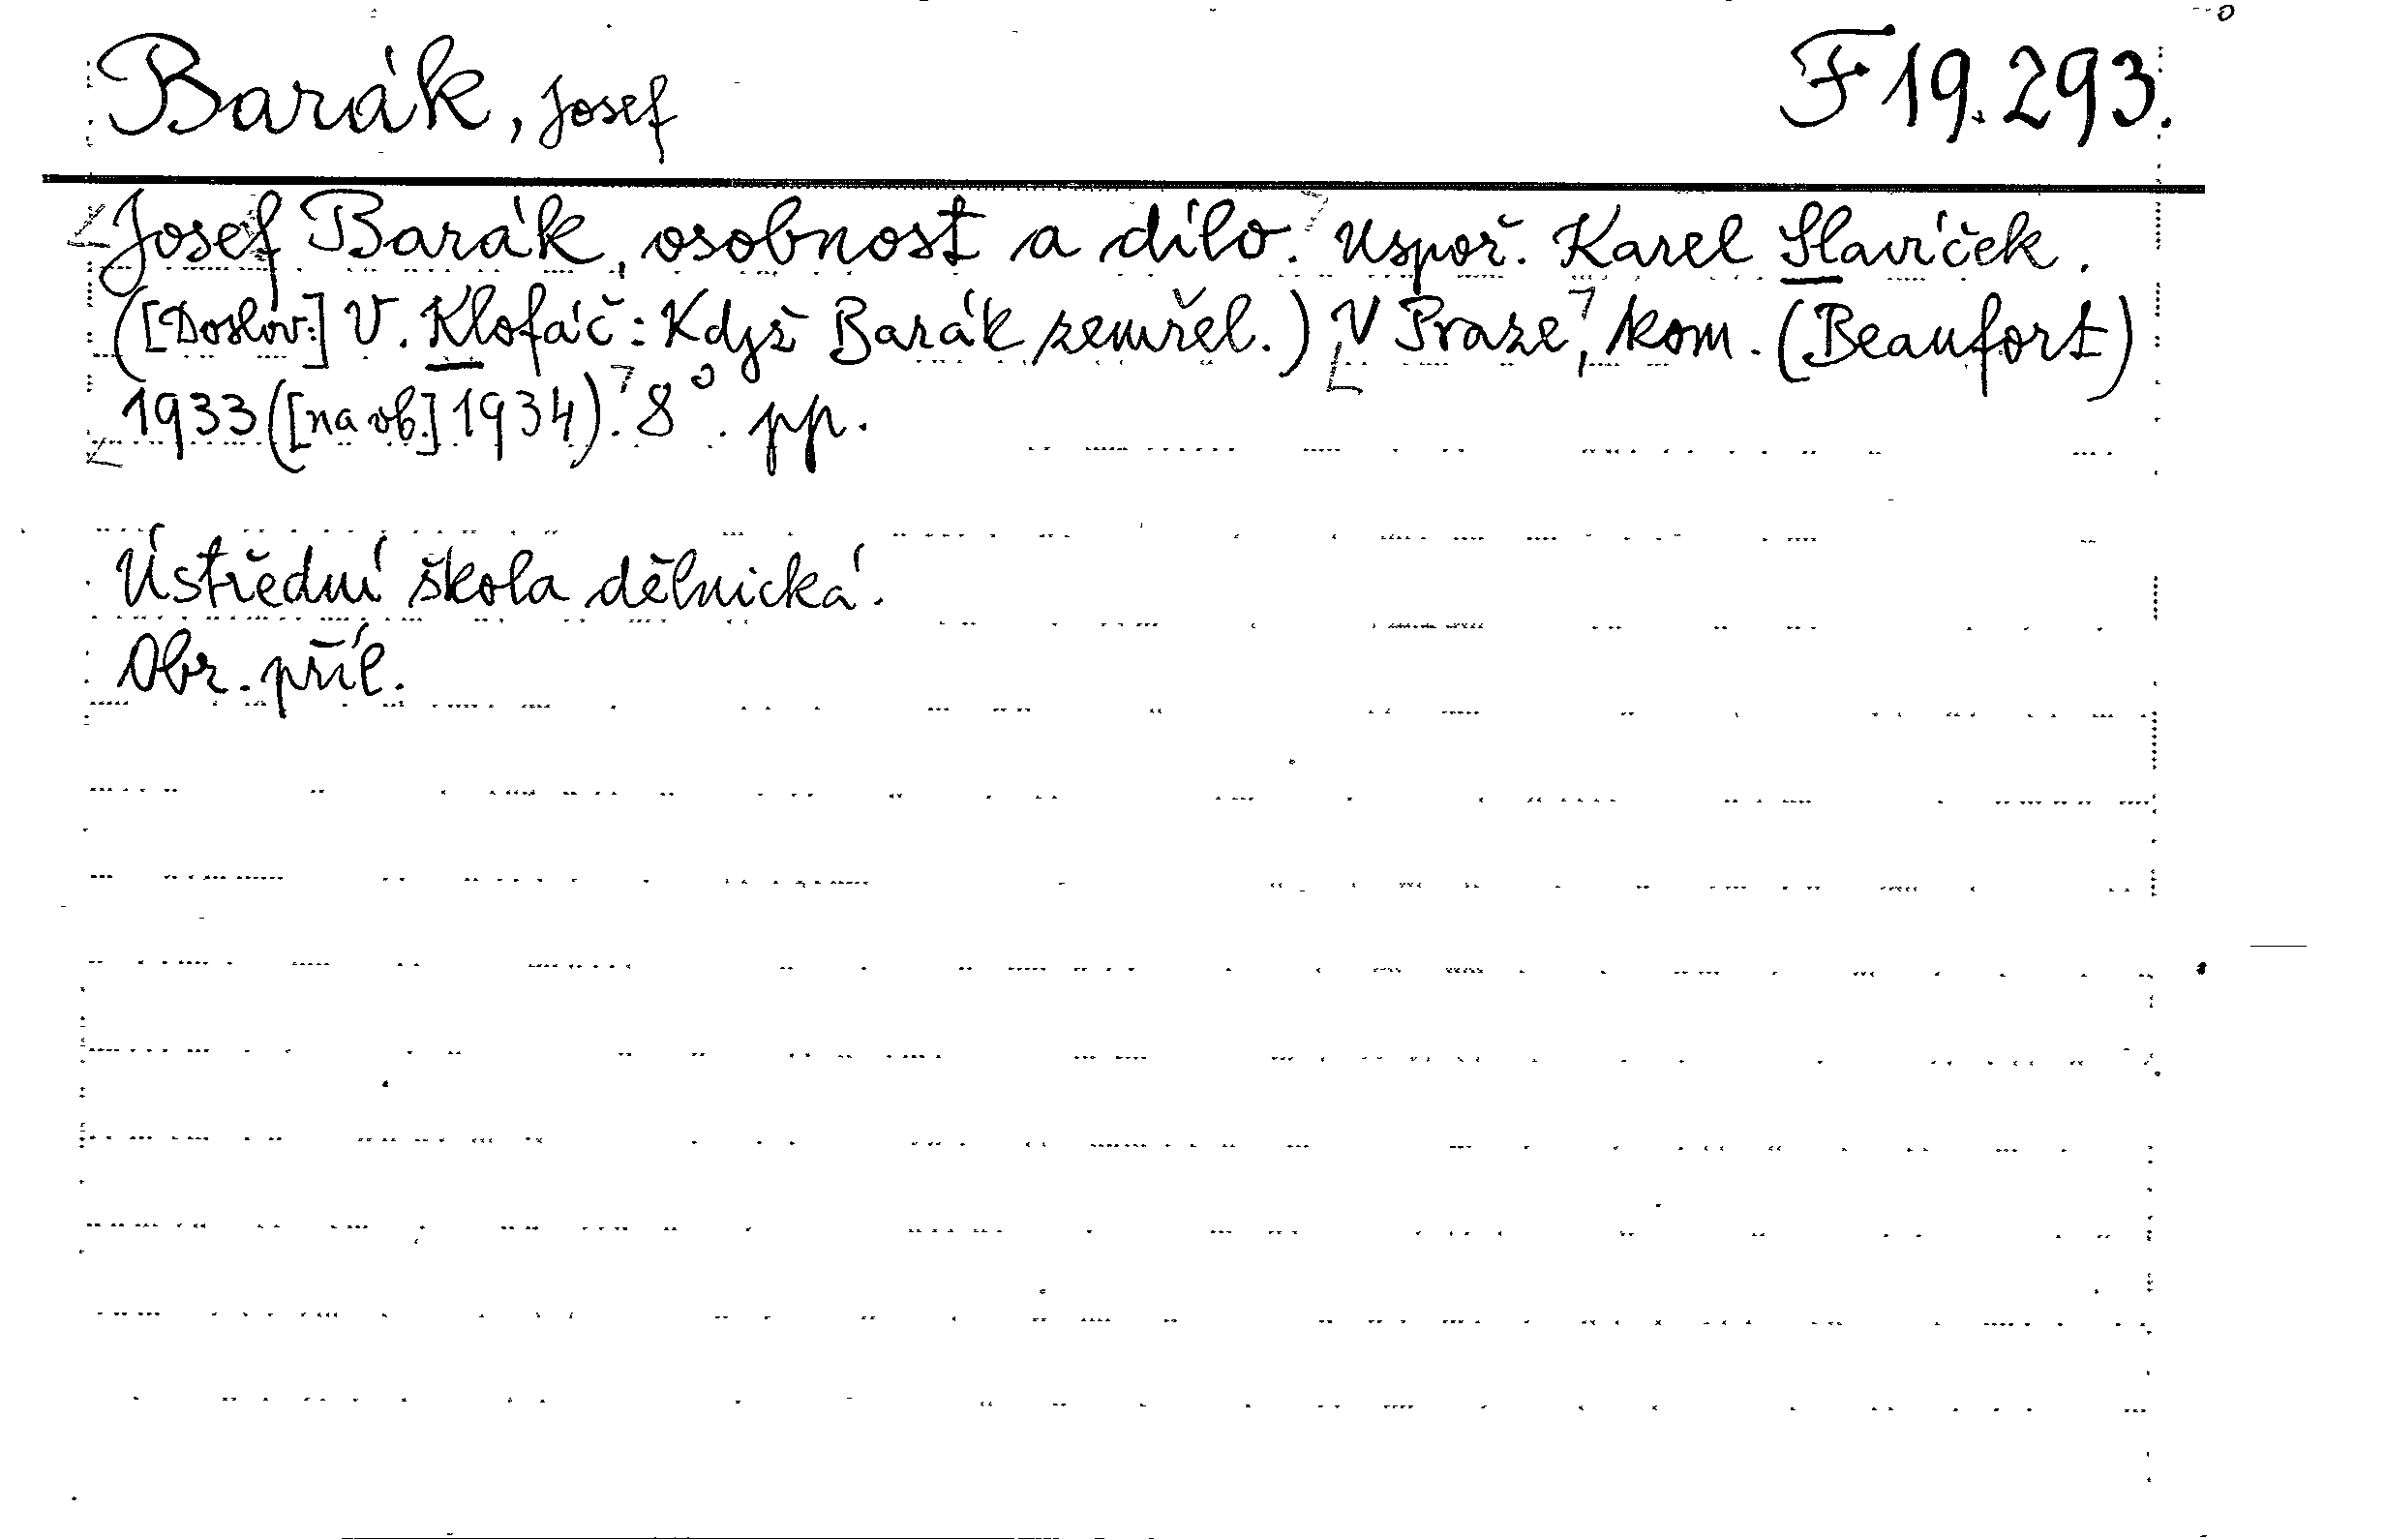 Barák, Josef F 19.293.
Josef Barák, osobnost a dílo. Uspoř. Karel Slavíček.
([Doslov:] V. Klofáč: Když Barák zemřel.) V Praze, kom. (Beaufort)
1933 ([na ob.] 1934). 8°. pp.
Ústřední škola dělnická.
Obr. příl.